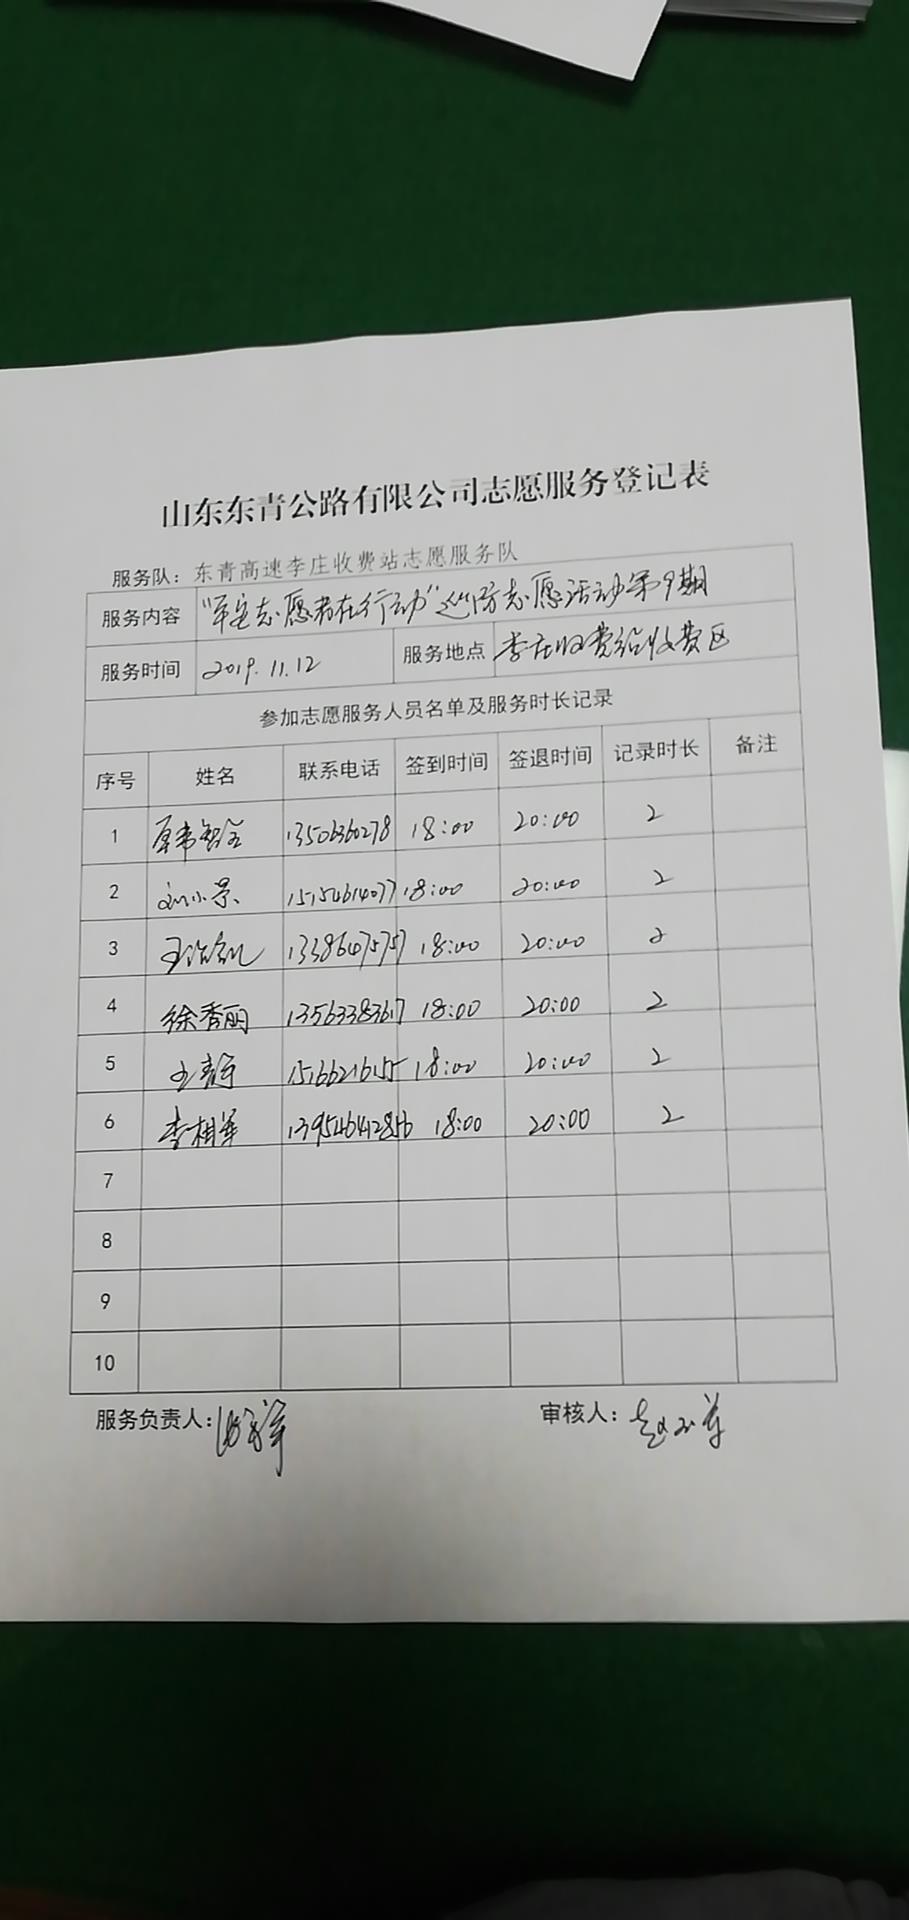 山东东青公路有限公司志愿服务登记表
服务队：东青高速李庄收费站志愿服务队
服务内容 "平安志愿者在行动"巡防志愿活动第9期
服务时间 2019.11.12 服务地点 李庄收费站收费区
参加志愿服务人员名单及服务时长记录
序号 姓名 联系电话 签到时间 签退时间 记录时长 备注
1 18:00 20:00 2
2 刘小景 15154614077 18:00 20:00 2
3 13386475757 18:00 20:00 2
4 徐秀丽 13563383617 18:00 20:00 2
5 王静 18:00 20:00 2
6 李相军 13954642856 18:00 20:00 2
7
8
9
10
服务负责人： 审核人：